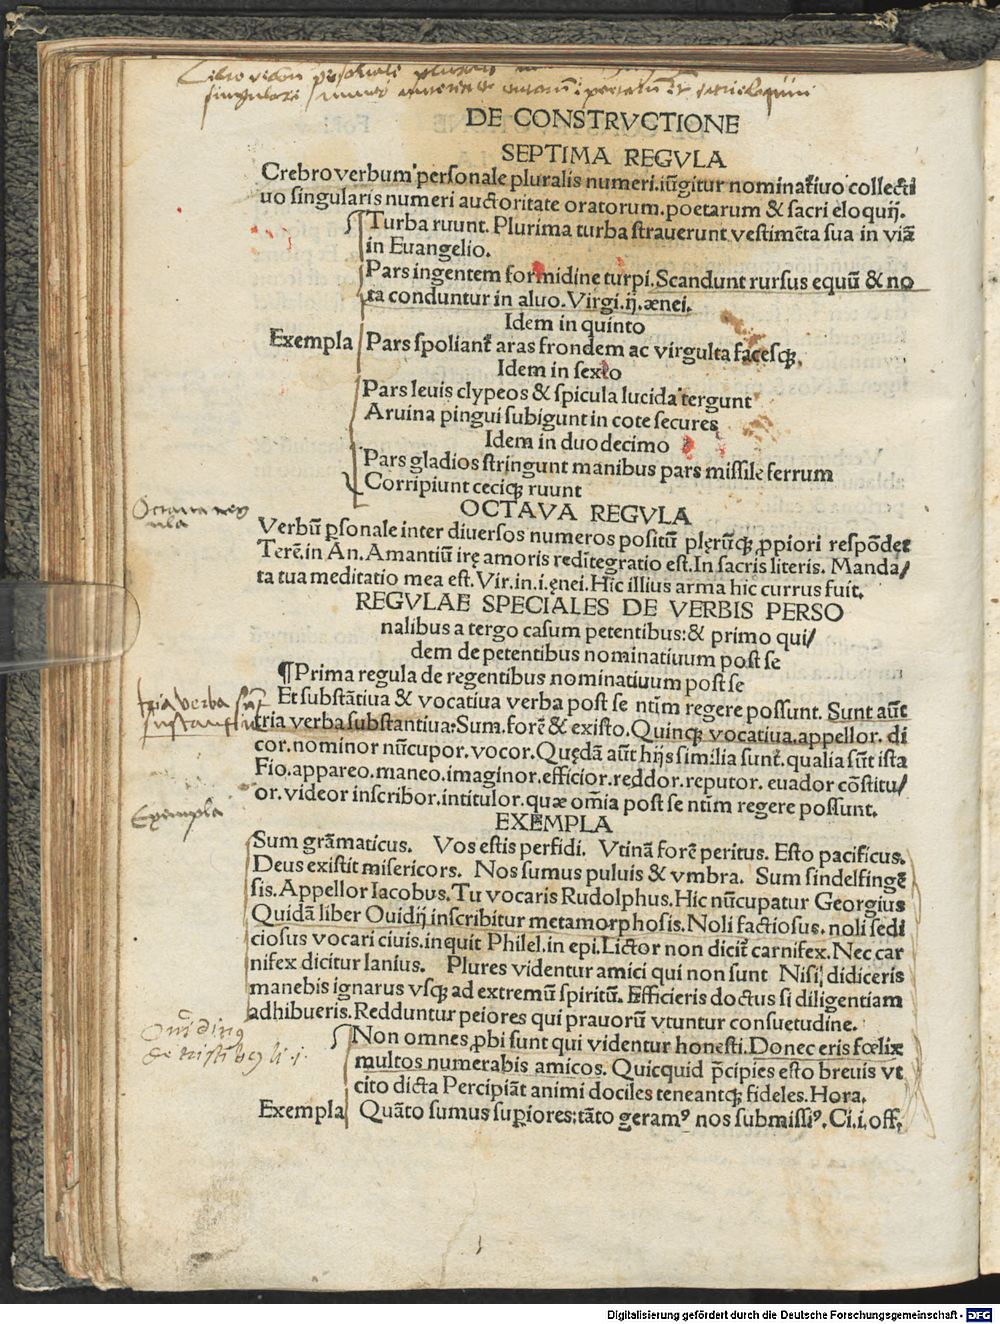 singulari
DE CONSTRVCTIONE
SEPTIMA REGVLA
Crebro verbum personale pluralis numeri.iũgitur nominatiuo collecti
uo singularis numeri auctoritate oratorum.poetarum & sacri eloquij.
Turba ruunt. Plurima turba strauerunt vestimẽta sua in viã
in Euangelio.
Pars ingentem formidine turpi.Scandunt rursus equũ & no
ta conduntur in aluo.Virgi.ij.ænei.
Idem in quinto
Exempla Pars spoliant᷑ aras frondem ac virgulta facesq;
Idem in sexto
Pars leuis clypeos & spicula lucida tergunt
Aruina pingui subigunt in cote secures
Idem in duodecimo
Pars gladios stringunt manibus pars missile ferrum
Corripiunt ceciq; ruunt
OCTAVA REGVLA
Octaua reg
ula
Verbũ p̱sonale inter diuersos numeros positũ plęrũq; ꝓpiori respõdet
Terẽ.in An.Amantiũ irę amoris reditegratio est.In sacris literis. Manda/
ta tua meditatio mea est.Vir.in.i.ęnei.Hic illius arma hic currus fuit.
REGVLAE SPECIALES DE VERBIS PERSO
nalibus a tergo casum petentibus:& primo qui/
dem de petentibus nominatiuum post se
¶Prima regula de regentibus nominatiuum post se
tria verba sũt
Et substãtiua & vocatiua verba post se ntĩm regere possunt. Sunt aũt
tria verba substantiua:Sum.forẽ & existo.Quinq; vocatiua.appellor.di
cor.nominor nũcupor.vocor.Quędã aũt hijs similia sunt.qualia sũt ista
Fio.appareo.maneo.imaginor.efficior.reddor.reputor. euador cõstitu/
or.videor inscribor.intitulor.quæ om̃ia post se ntĩm regere possunt.
Exempla
EXEMPLA
Sum grãmaticus. Vos estis perfidi. Vtinã forẽ peritus. Esto pacificus.
Deus existit misericors. Nos sumus puluis & vmbra. Sum sindelfingẽ
sis.Appellor Iacobus.Tu vocaris Rudolphus.Hic nũcupatur Georgius
Quidã liber Ouidij inscribitur metamorphosis.Noli factiosus.noli sedi
ciosus vocari ciuis.inquit Philel.in epi.Lictor non dicit᷑ carnifex.Nec car
nifex dicitur lanius. Plures videntur amici qui non sunt Nisi didiceris
manebis ignarus vsq; ad extremũ spiritũ. Efficieris doctus si diligentiam
adhibueris.Redduntur peiores qui prauorũ vtuntur consuetudine.
Non omnes ꝓbi sunt qui videntur honesti.Donec eris fœlix
multos numerabis amicos. Quicquid p̃cipies esto breuis vt
cito dicta Percipiãt animi dociles teneantq; fideles.Hora.
Exempla Quãto sumus sup̱iores:tãto geramꝰ nos submissiꝰ.Ci.i.off.
Digitalisierung gefördert durch die Deutsche Forschungsgemeinschaft - DFG